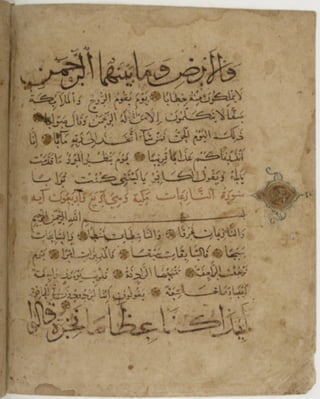 والارض وما بينهما الرحمن
لا يملكون منه خطابا يوم يقوم الروح والملائكة
صفا لا يتكلمون الا من اذن له الرحمن وقال صوابا
ذلك اليوم الحق فمن شاء اتخذ الى ربه مآبا انا
انذرناكم عذابا قريبا يوم ينظر المرء ما قدمت
يداه ويقول الكافر يا ليتني كنت ترابا
سورة النازعات مكية وهي واربعون آية
بسم الله الرحمن الرحيم
والنازعات غرقا والناشطات نشطا والسابحات
سبحا فالسابقات سبقا فالمدبرات امرا يوم
ترجف الراجفة تتبعها الرادفة قلوب يومئذ واجفة
ابصارها خاشعة يقولون ائنا لمردودون في الحافرة
ائذا كنا عظاما نخرة قالوا